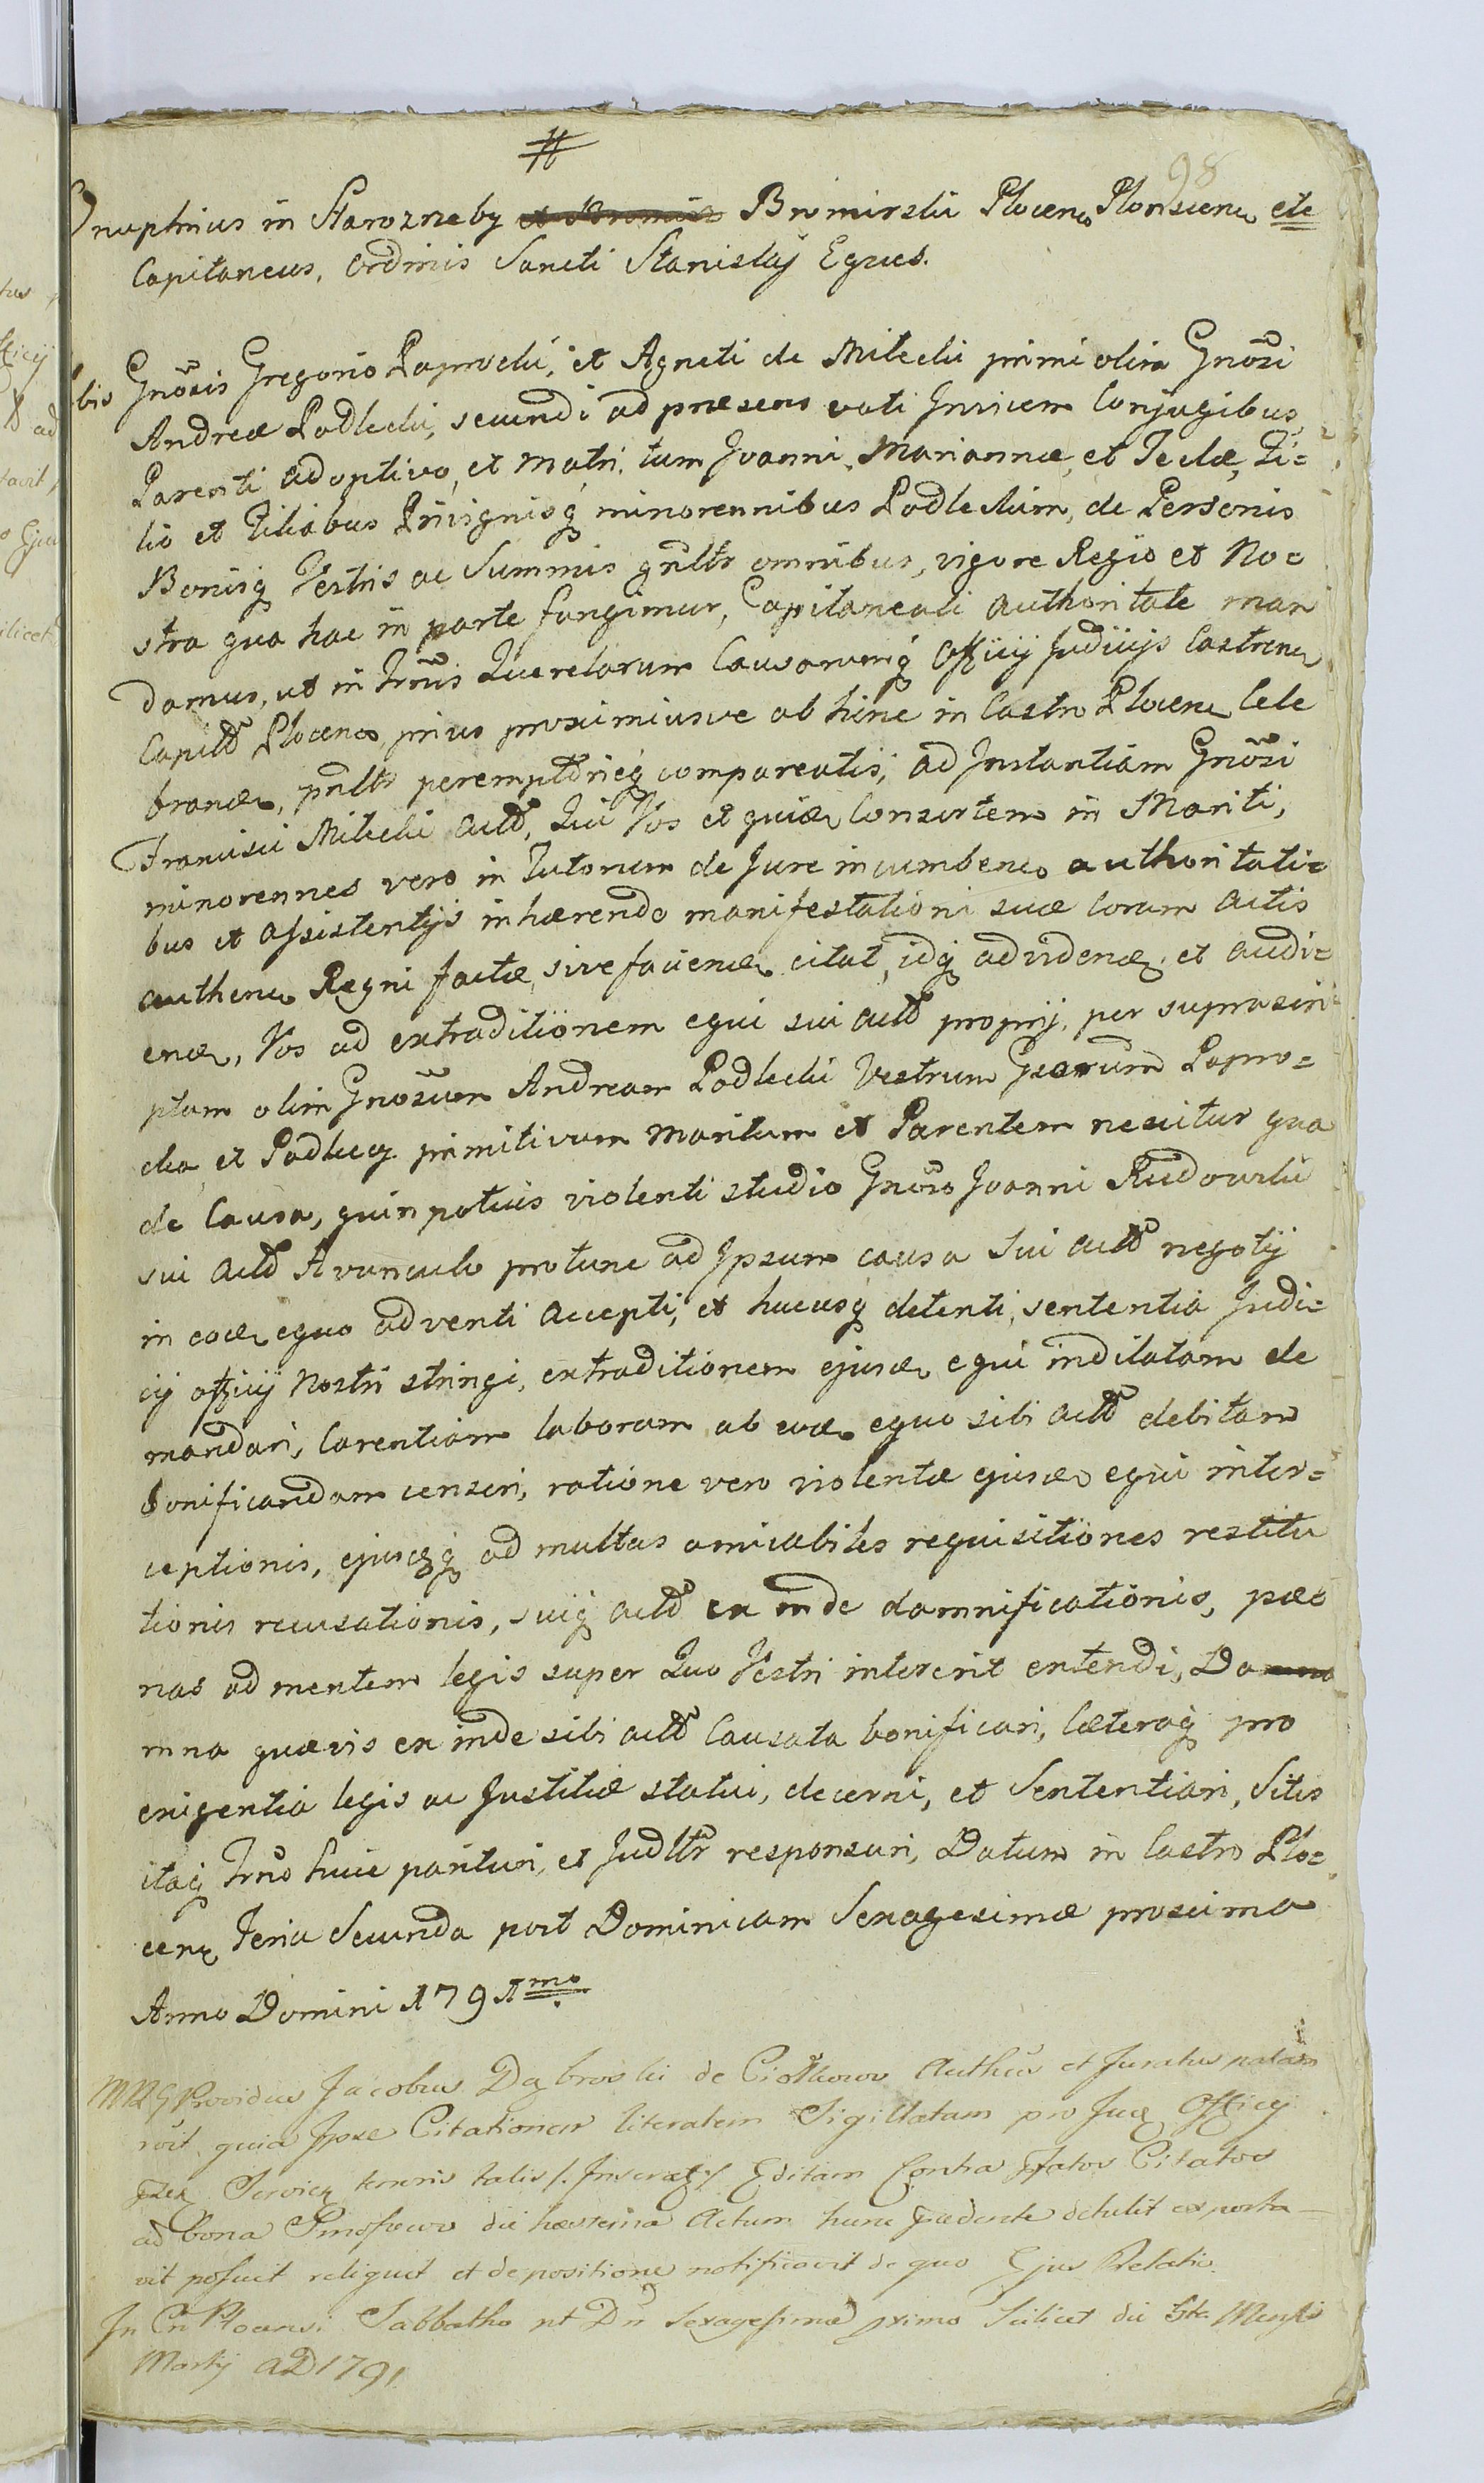 #
98
Onuphrius in Starozreby et Bromierz Bromirski Plocens Plonscens etc
Capitaneus, Ordinis Sancti Stanislaj Eques.
Gnõsis Gregorio Paprocki, et Agneti de Mileckie primi olim Gnõsi
Andreæ Podlecki, secundi ad præsens voti Invicem Conjugibus,
Parenti adoptivo, et Matri, tum Joanni, Mariannæ, et Teclæ, Fi=
lio et Filiabus Privignisq minorennibus Podleckim, de Personis
Bonisq Vestris ac Summis gnltr omnibus, vigore Regio et No=
stra qua hac in parte fungimur, Capitaneali authoritate man
damus, ut in Trmis Querelarum Causarumq Officij Judicijs Castrens
Capitd Plocens prius proximiusve ab hinc in Castro Plocens Cele
brand, pnltr peremptorieq compareatis, ad Instantiam Gnõsi
Francisci Milecki Actd, Qui Vos et quid Consortem in Mariti,
minorennes vero in Tutorum de Jure incumbens authoritati=
bus et assistentijs inhærendo manifestationi suæ Coram Actis
authens Regni factæ, sive faciend citat, idq ad videnđ et audi=
end, Vos ad extraditionem equi sui actd proprij, per suprascri=
ptum olim Gnõsum Andream Podlecki Vestrum Gsorum Papro=
cka et Podleckq primitivum Maritum et Parentem nescitur qua
de Causa, quin potius violenti studio Gnõso Joanni Rudowski
sui Actd Avunculo protunc ad Ipsum causa Sui actd negotij
in eod equo adventi accepti, et hucusq detenti, sententia Judi=
cij officij Nostri stringi, extraditionem ejusd equi indilatam de
mandari, Carentiam laborum ab eod equo sibi actd debitam
bonificandam censeri, ratione vero violentæ ejusd equi inter=
ceptionis, ejusdq ad multas amicabiles requisitiones restitu
tionis recusationis, suiq actd ex inde damnificationis, pæ
nas ad mentem legis super Quo Vestri intererit extendi, Da
mna quævis ex inde sibi actd Causata bonificari, Cæteraq pro
exigentia legis ac Justitiæ statui, decerni, et Sententiari, Sitis
itaq Trno huic parituri, et Judltr responsuri, Datum in Castro Plo=
cens Feria Secunda post Dominicam Sexagesimæ proxima
Anno Domini 1791mo
Providus Jacobus Dąbroski de Ciołkowo Authen et Juratus
vit quia Ipse Citationem literalem Sigillatam pro Officij
tenoris talis Editam Contra Citatos
ad bona die hesterna Actum hunc detulit
vit posuit reliquit et de positione notificavit de quo Ejus Relatio
In Plocensi Sabbatho pt Dn Sexagesimæ proximo Scilicet die 5ta Mensis
Martij AD 1791